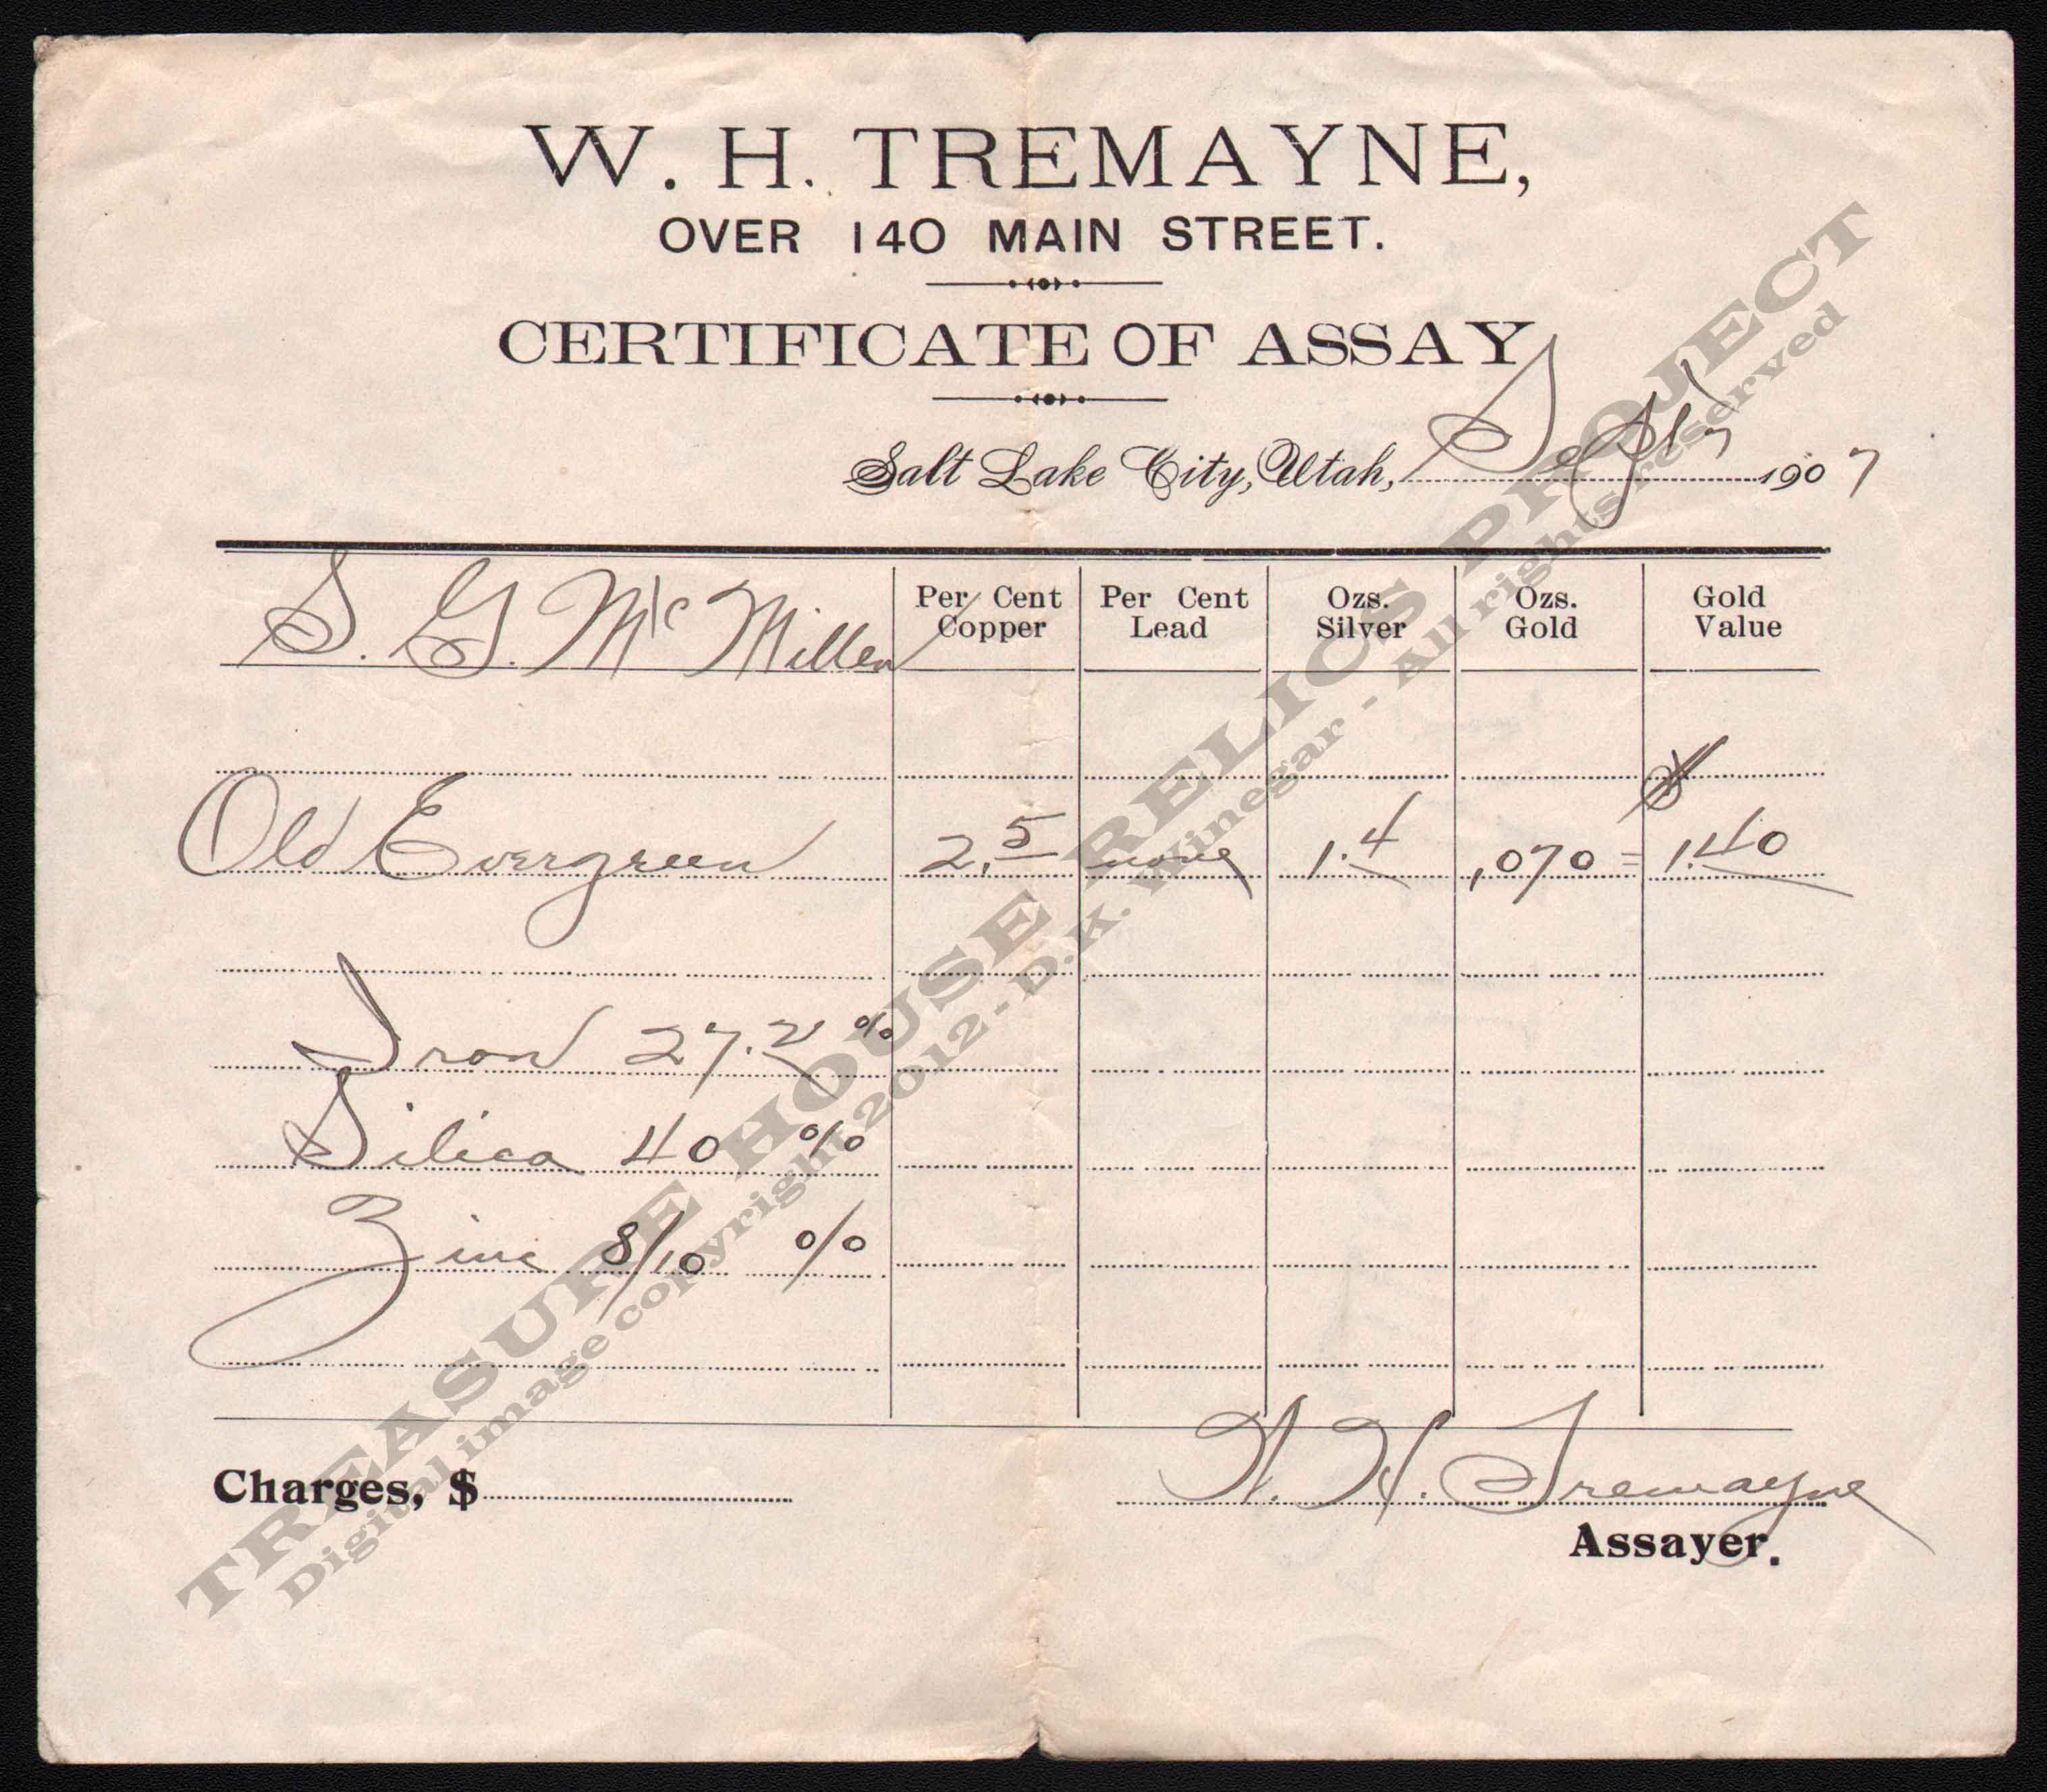 W. H. TREMAYNE,
OVER 140 MAIN STREET.
CERTIFICATE OF ASSAY
Salt Lake City, Utah, Sept 7 1907
S. G. McMillen
Per Cent Copper
Per Cent Lead
Ozs. Silver
Ozs. Gold
Gold Value
$
Old Evergreen 2.5 none 1.4 .070 = 1.40
Iron 27.2 %
Silica 40 %
Zinc 8/10 %
Charges, $
W. H. Tremayne
Assayer.
TREASURE HOUSE RELICS PROJECT
Digital image copyright 2012 - D.K. Winegar - All rights reserved